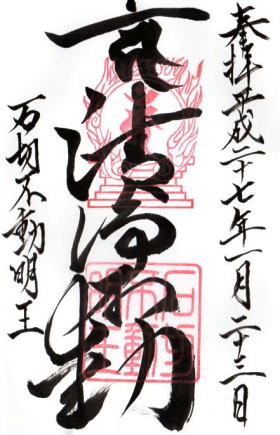 奉拝平成二十七年一月二十三日
清浄
石切不動明王
石切不動明王